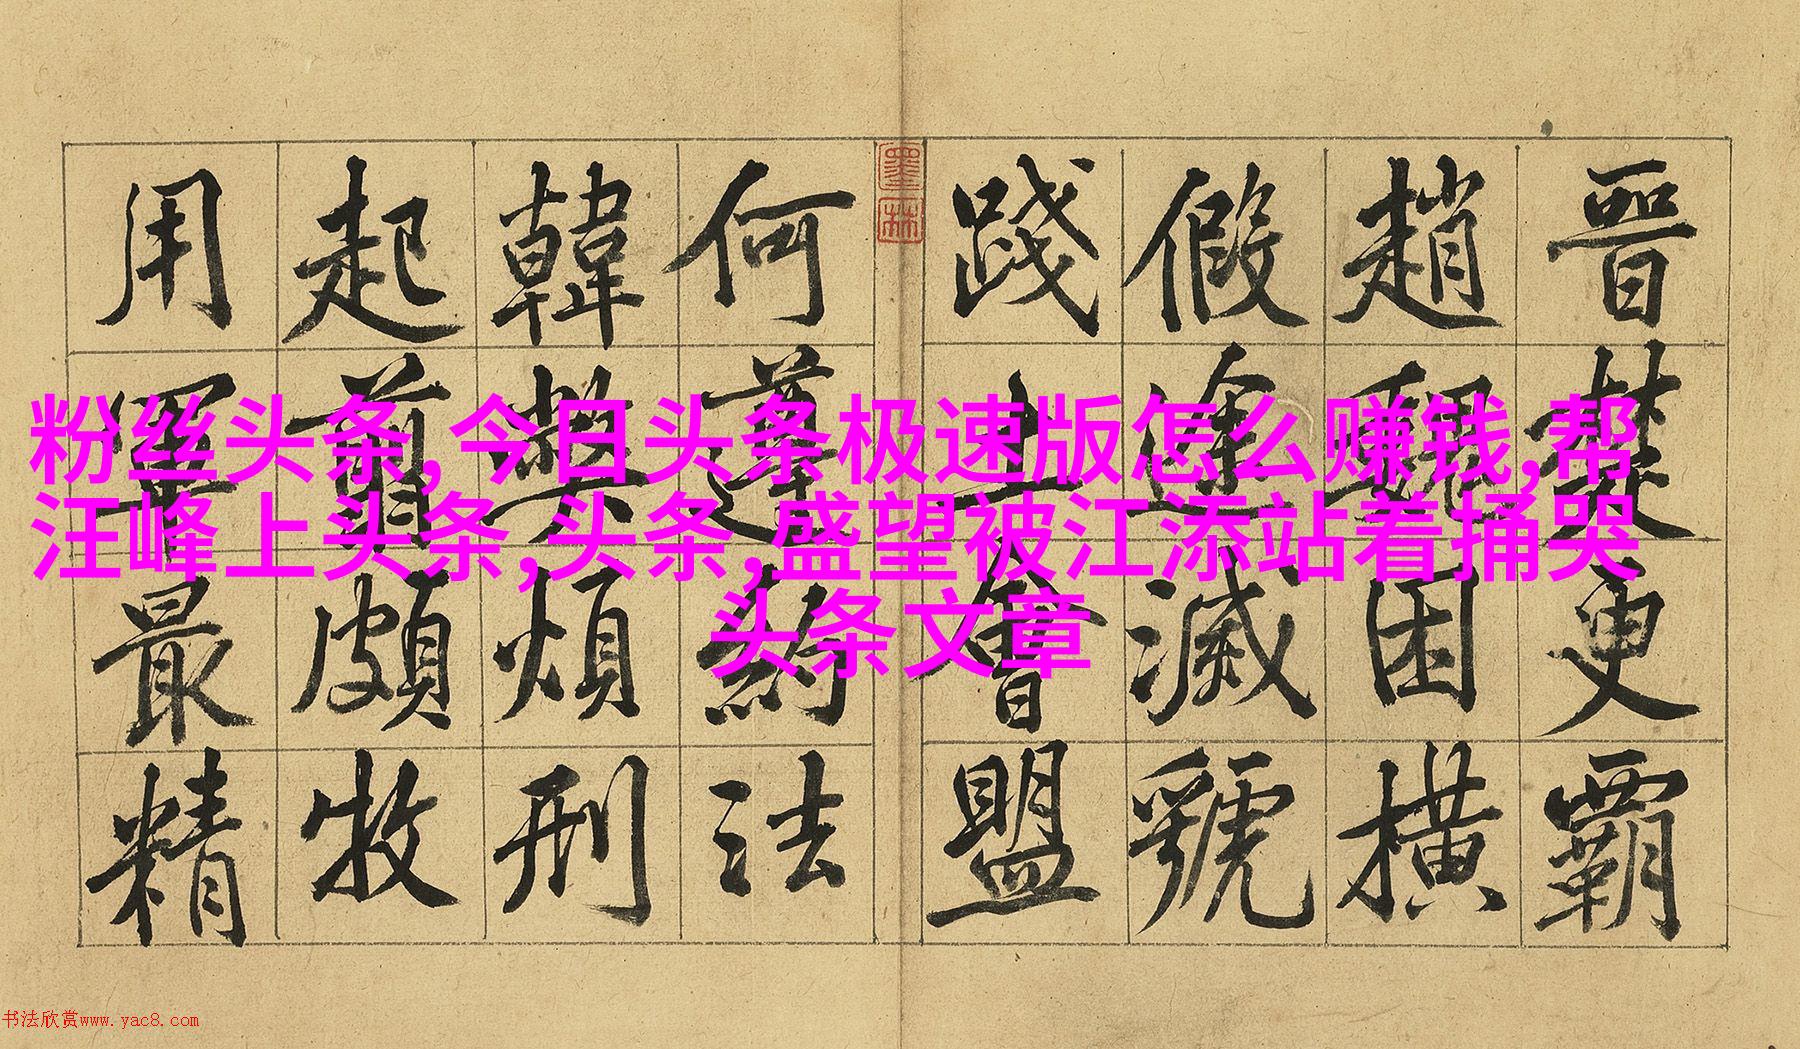 晉楚更霸
趙魏困橫
假途滅虢
踐土會盟
墨林
何遵約法
韓弊煩刑
起翦頗牧
用軍最精
粉丝头条,今日头条极速版怎么赚钱,帮
汪峰上头条,头条,盛望被江添站着捅哭
头条文章
书法欣赏www.yac8.com